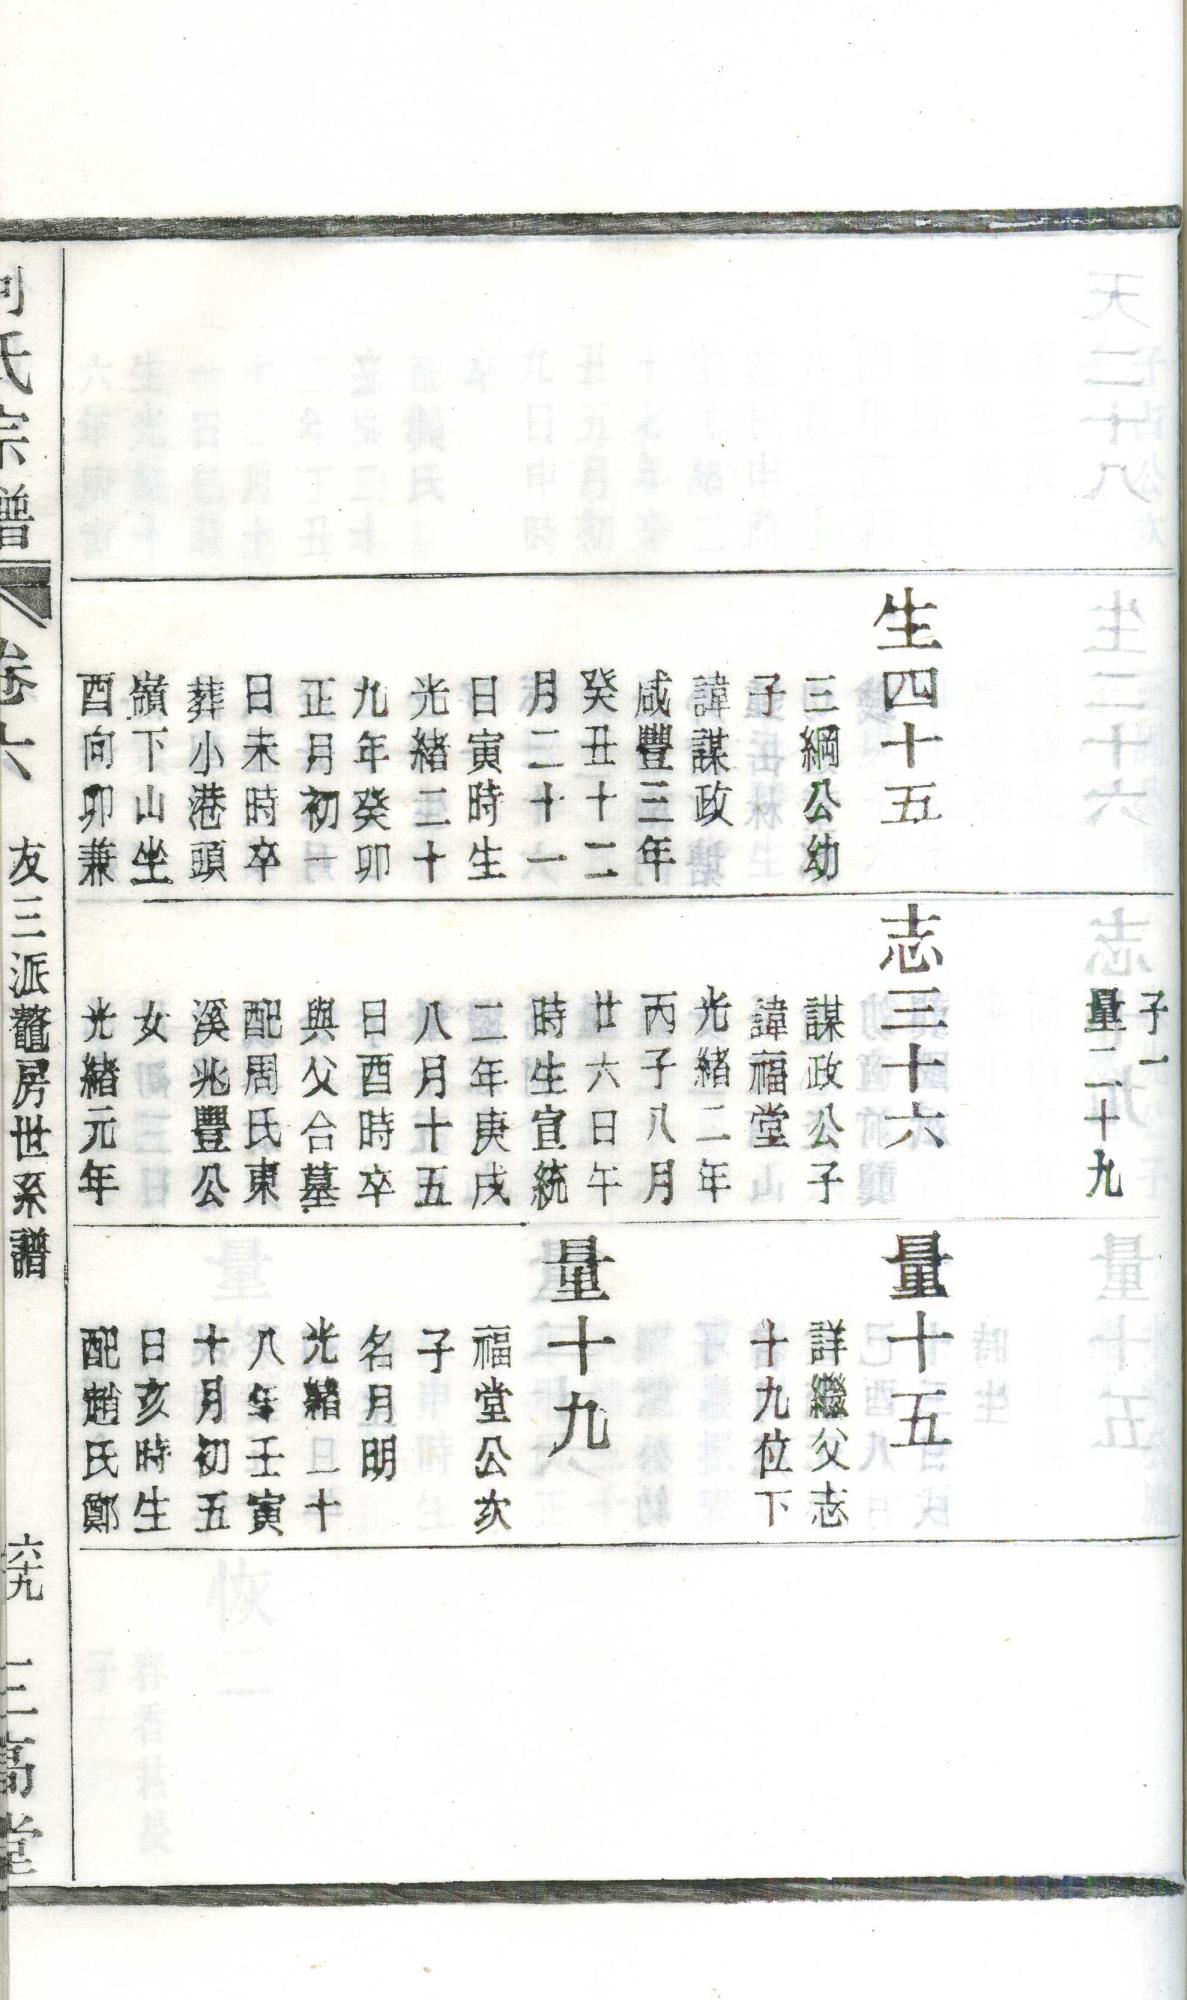 生四十五
三綱公幼
子
諱謀政
咸豐三年
癸丑十二
月二十一
日寅時生
光緒二十
九年癸卯
正月初一
日未時卒
葬小港頭
嶺下山坐
酉向卯兼
子一
量二十九
志三十六
謀政公子
諱福堂
光緒二年
丙子八月
廿六日午
時生宣統
二年庚戌
八月十五
日酉時卒
與父合墓
配周氏東
溪兆豐公
女
光緒元年
量十五
詳繼父志
十九位下
量十九
福堂公次
子
名月明
光緒二十
八年壬寅
十月初五
日亥時生
配趙氏鄭
氏宗譜
卷六
友三派鼇房世系譜
六十九
三高堂